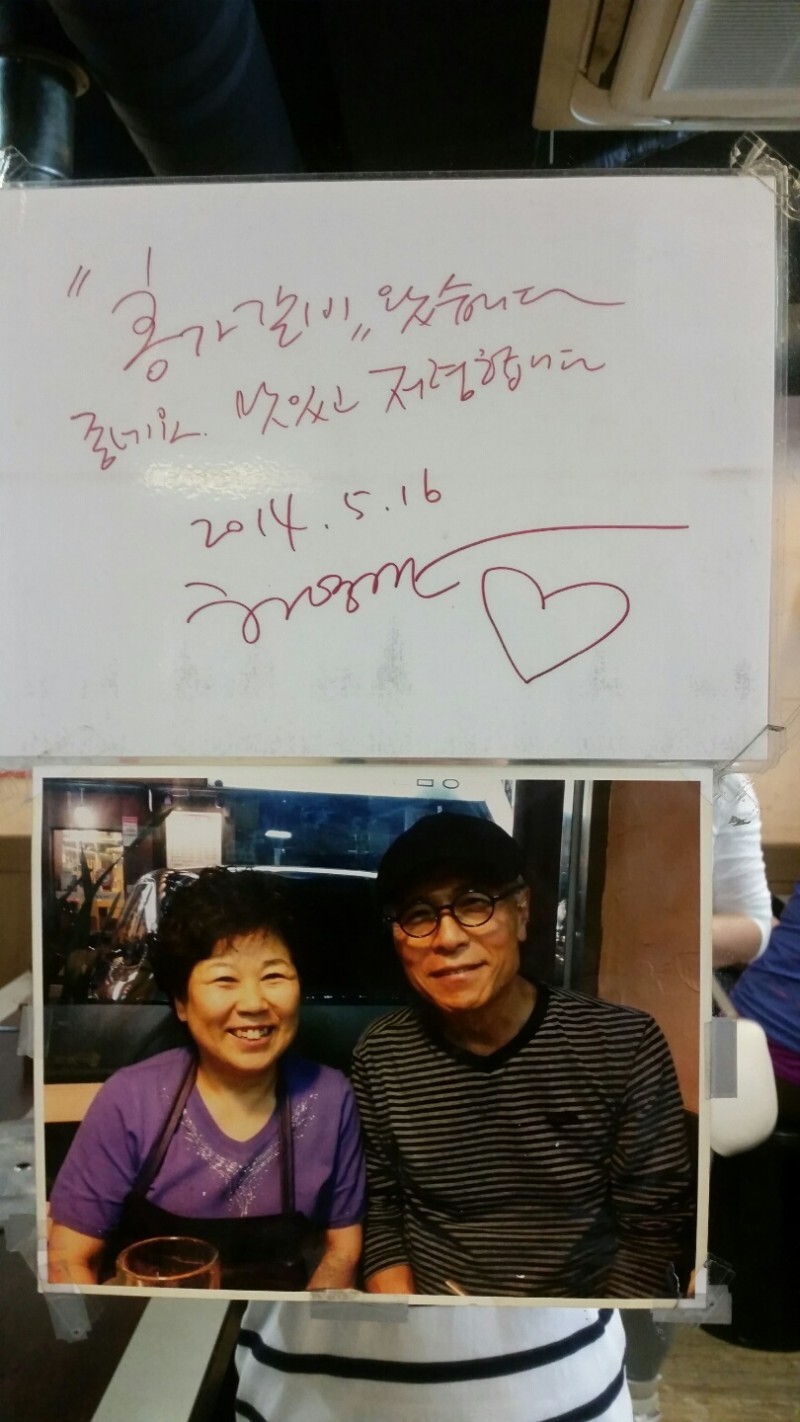 "홍가갈비" 왔습니다
좋네요. 맛있고 저렴합니다
2014.5.16